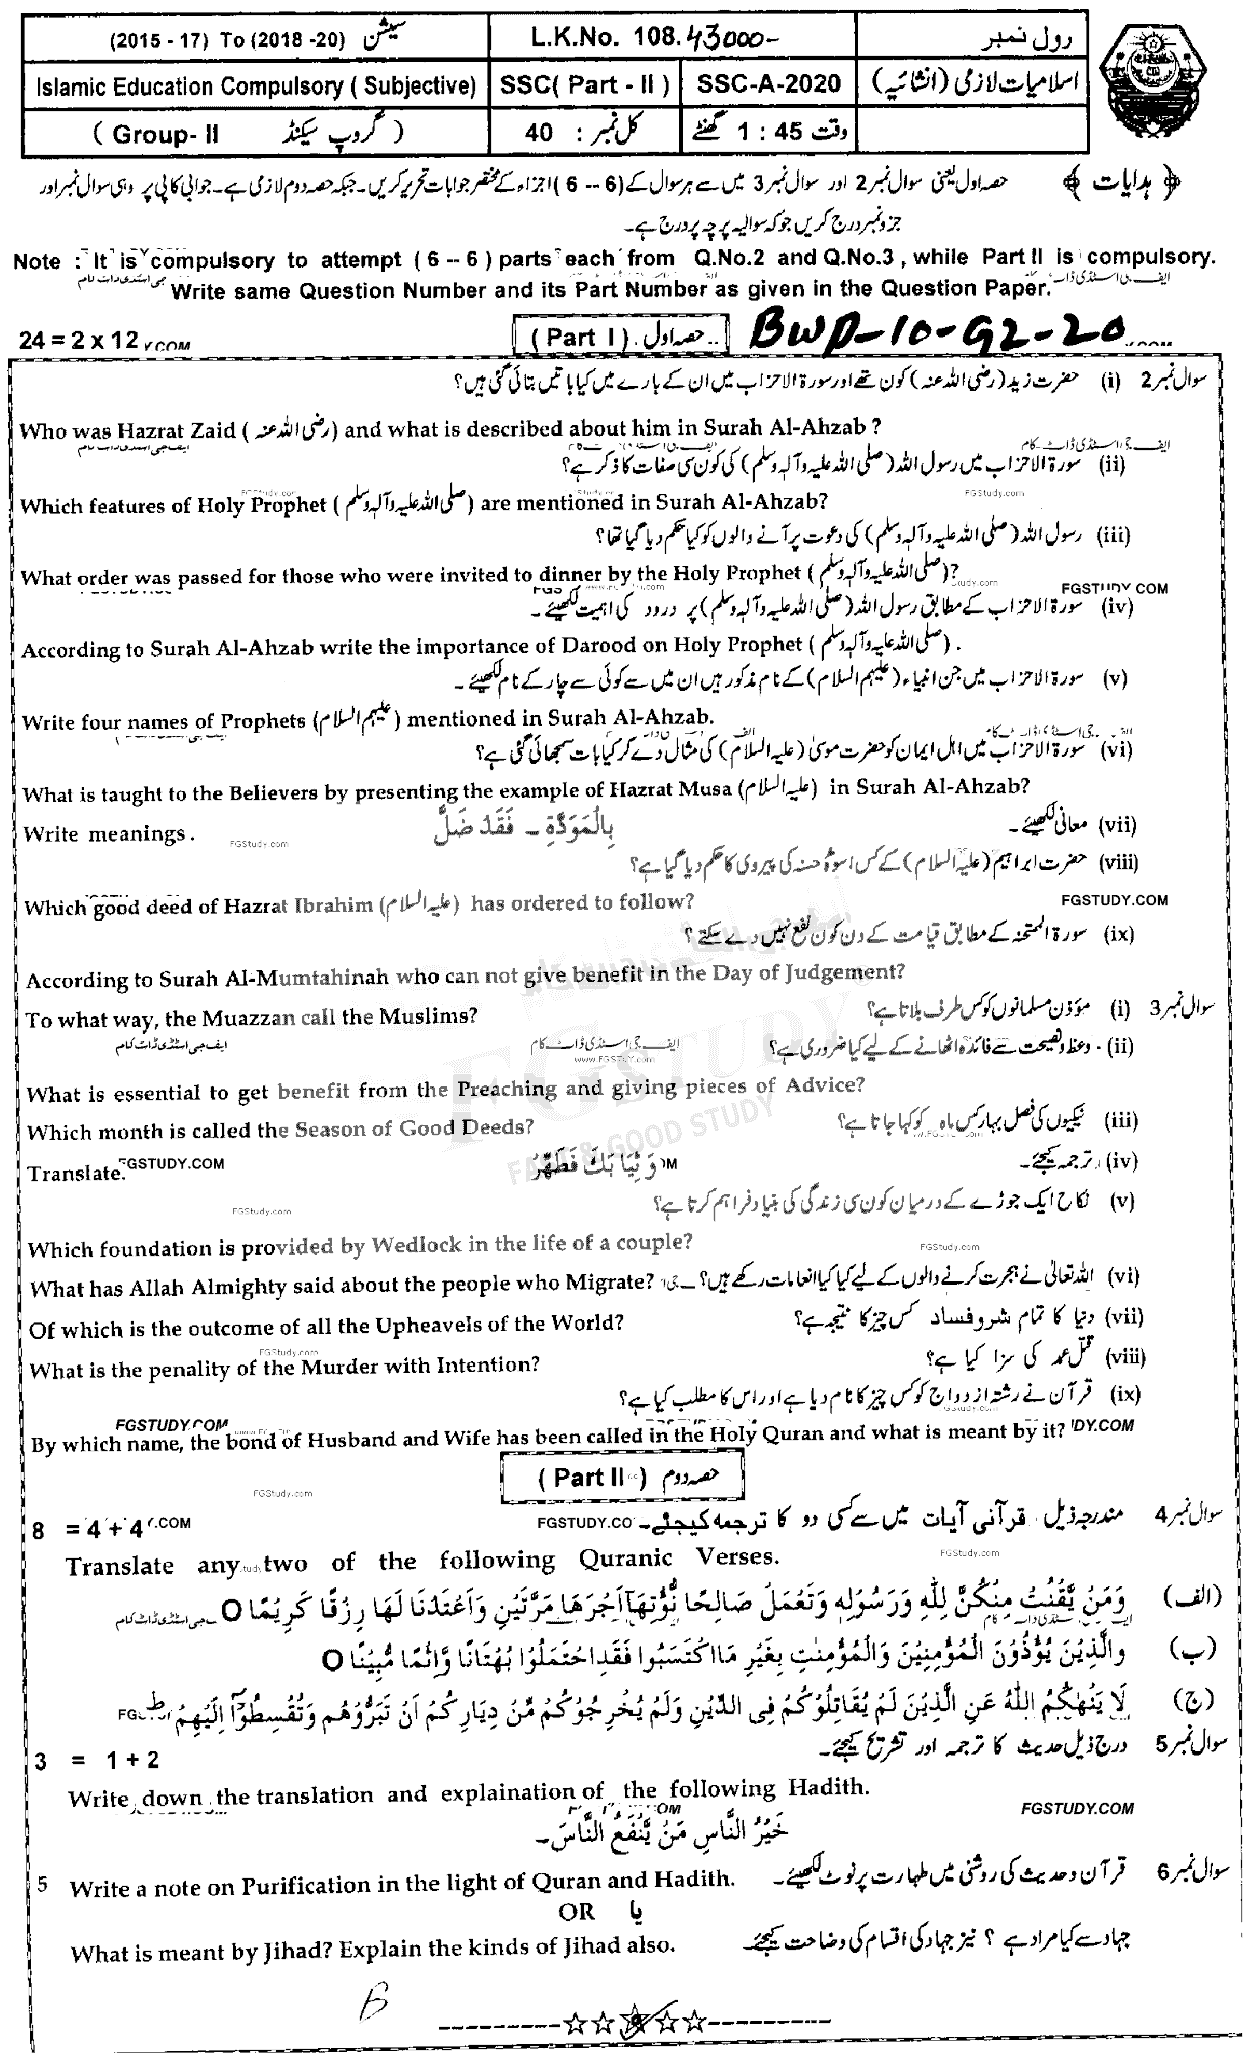 (2015 - 17) To (2018 -20) سیشن
L.K.No. 108.43000-
رول نمبر
Islamic Education Compulsory ( Subjective)
SSC( Part - II )
SSC-A-2020
اسلامیات لازمی (انشائیہ)
( Group- II گروپ سیکنڈ )
کل نمبر : 40
وقت 1 : 45 گھنٹے
﴿ ہدایات ﴾ حصہ اول یعنی سوال نمبر 2 اور سوال نمبر 3 میں سے ہر سوال کے (6 -- 6) اجزاء کے مختصر جوابات تحریر کریں۔ جبکہ حصہ دوم لازمی ہے۔ جوابی کاپی پر وہی سوال نمبر اور
جزو نمبر درج کریں جو کہ سوالیہ پرچہ پر درج ہے۔
Note : It is compulsory to attempt ( 6 -- 6 ) parts each from Q.No.2 and Q.No.3 , while Part II is compulsory.
Write same Question Number and its Part Number as given in the Question Paper.
24 = 2 x 12
( Part I ) حصہ اول
BWP-10-G2-20
سوال نمبر 2 (i) حضرت زید (رضی اللہ عنہ) کون تھے اور سورۃ الاحزاب میں ان کے بارے میں کیا باتیں بتائی گئی ہیں؟
Who was Hazrat Zaid ( رضی اللہ عنہ ) and what is described about him in Surah Al-Ahzab ?
(ii) سورۃ الاحزاب میں رسول اللہ (صلی اللہ علیہ وآلہ وسلم) کی کون سی صفات کا ذکر ہے؟
Which features of Holy Prophet ( صلی اللہ علیہ وآلہ وسلم ) are mentioned in Surah Al-Ahzab?
(iii) رسول اللہ (صلی اللہ علیہ وآلہ وسلم) کی دعوت پر آنے والوں کو کیا حکم دیا گیا تھا؟
What order was passed for those who were invited to dinner by the Holy Prophet ( صلی اللہ علیہ وآلہ وسلم )?
FGSTUDY.COM
(iv) سورۃ الاحزاب کے مطابق رسول اللہ (صلی اللہ علیہ وآلہ وسلم) پر درود کی اہمیت لکھیئے۔
According to Surah Al-Ahzab write the importance of Darood on Holy Prophet ( صلی اللہ علیہ وآلہ وسلم ) .
(v) سورۃ الاحزاب میں جن انبیاء (علیہم السلام) کے نام مذکور ہیں ان میں سے کوئی سے چار کے نام لکھیئے۔
Write four names of Prophets (علیہم السلام) mentioned in Surah Al-Ahzab.
(vi) سورۃ الاحزاب میں اہل ایمان کو حضرت موسیٰ (علیہ السلام) کی مثال دے کر کیا بات سمجھائی گئی ہے؟
What is taught to the Believers by presenting the example of Hazrat Musa (علیہ السلام) in Surah Al-Ahzab?
Write meanings . بِالْمَوَدَّةِ ۔ فَقَدْ ضَلَّ (vii) معانی لکھیئے۔
(viii) حضرت ابراہیم (علیہ السلام) کے کس اسوۂ حسنہ کی پیروی کا حکم دیا گیا ہے؟
Which good deed of Hazrat Ibrahim (علیہ السلام) has ordered to follow?
FGSTUDY.COM
(ix) سورۃ الممتحنہ کے مطابق قیامت کے دن کون نفع نہیں دے سکتے؟
According to Surah Al-Mumtahinah who can not give benefit in the Day of Judgement?
To what way, the Muazzan call the Muslims? سوال نمبر 3 (i) مؤذن مسلمانوں کو کس طرف بلاتا ہے؟
(ii) وعظ و نصیحت سے فائدہ اٹھانے کے لیے کیا ضروری ہے؟
What is essential to get benefit from the Preaching and giving pieces of Advice?
Which month is called the Season of Good Deeds? (iii) نیکیوں کی فصل بہار کس ماہ کو کہا جاتا ہے؟
Translate. وَثِيَابَكَ فَطَهِّرْ (iv) ترجمہ کیجئے۔
FGSTUDY.COM
(v) نکاح ایک جوڑے کے درمیان کون سی زندگی کی بنیاد فراہم کرتا ہے؟
Which foundation is provided by Wedlock in the life of a couple?
What has Allah Almighty said about the people who Migrate? (vi) اللہ تعالیٰ نے ہجرت کرنے والوں کے لیے کیا کیا انعامات رکھے ہیں؟
Of which is the outcome of all the Upheavels of the World? (vii) دنیا کا تمام شر و فساد کس چیز کا نتیجہ ہے؟
What is the penality of the Murder with Intention? (viii) قتل عمد کی سزا کیا ہے؟
(ix) قرآن نے رشتہ ازدواج کو کس چیز کا نام دیا ہے اور اس کا مطلب کیا ہے؟
FGSTUDY.COM
By which name, the bond of Husband and Wife has been called in the Holy Quran and what is meant by it?
( Part II ) حصہ دوم
8 = 4 + 4 سوال نمبر 4 مندرجہ ذیل قرآنی آیات میں سے کسی دو کا ترجمہ کیجئے۔
Translate any two of the following Quranic Verses.
(الف) وَمَنْ يَّقْنُتْ مِنْكُنَّ لِلّٰهِ وَرَسُوْلِهٖ وَتَعْمَلْ صَالِحًا نُّؤْتِهَآ اَجْرَهَا مَرَّتَيْنِ وَاَعْتَدْنَا لَهَا رِزْقًا كَرِيْمًا O
(ب) وَالَّذِيْنَ يُؤْذُوْنَ الْمُؤْمِنِيْنَ وَالْمُؤْمِنٰتِ بِغَيْرِ مَا اكْتَسَبُوْا فَقَدِ احْتَمَلُوْا بُهْتَانًا وَّاِثْمًا مُّبِيْنًا O
(ج) لَا يَنْهٰكُمُ اللّٰهُ عَنِ الَّذِيْنَ لَمْ يُقَاتِلُوْكُمْ فِى الدِّيْنِ وَلَمْ يُخْرِجُوْكُمْ مِّنْ دِيَارِكُمْ اَنْ تَبَرُّوْهُمْ وَتُقْسِطُوْٓا اِلَيْهِمْ ط
3 = 1 + 2 سوال نمبر 5 درج ذیل حدیث کا ترجمہ اور تشریح کیجئے۔
Write down the translation and explaination of the following Hadith.
FGSTUDY.COM
خَيْرُ النَّاسِ مَنْ يَّنْفَعُ النَّاسَ۔
5 Write a note on Purification in the light of Quran and Hadith. سوال نمبر 6 قرآن و حدیث کی روشنی میں طہارت پر نوٹ لکھیئے۔
OR یا
What is meant by Jihad? Explain the kinds of Jihad also. جہاد سے کیا مراد ہے؟ نیز جہاد کی اقسام کی وضاحت کیجئے۔
B